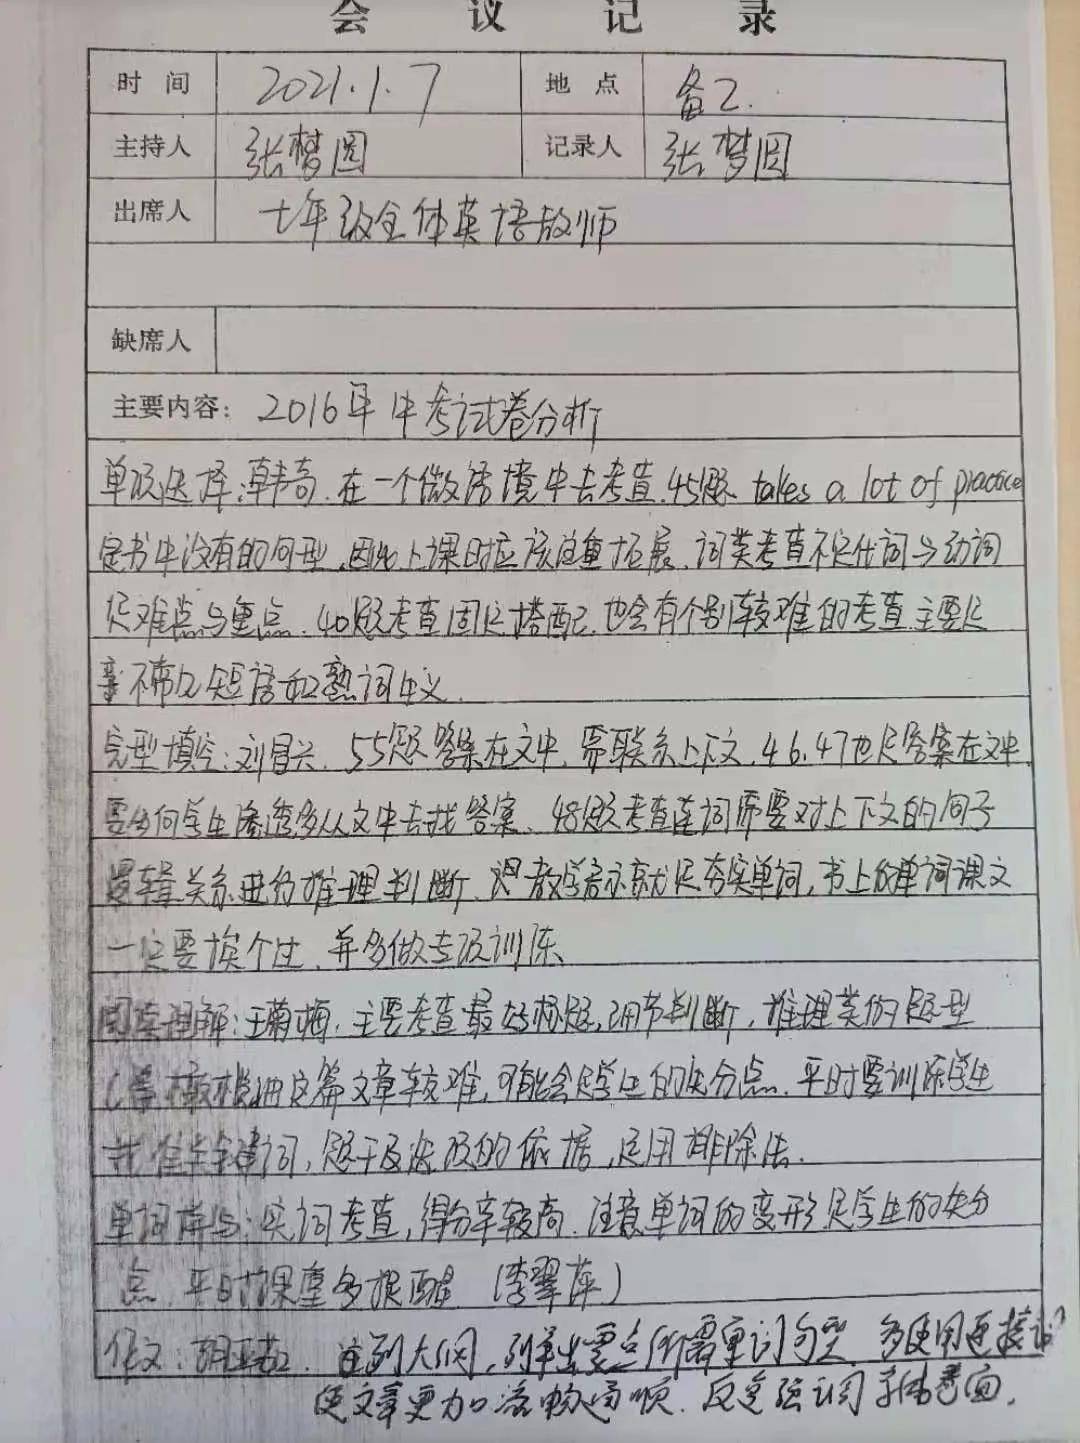 会议记录
时间 2021.1.7 地点 备2.
主持人 张梦圆 记录人 张梦圆
出席人 七年级全体英语教师
缺席人
主要内容: 2016年中考试卷分析
单项选择:韩奇.在一个微语境中去考查.45题 takes a lot of practice
是书中没有的句型.因此上课时应该注重拓展.词类考查不定代词与动词
是难点与重点.40题考查固定搭配.也会有个别较难的考查.主要是
不常见短语和熟词生义.
完型填空:刘冒兴.55题答案在文中.需联系上下文.46.47也是答案在文中.
要多向学生渗透多从文中去找答案.48题考查连词需要对上下文的句子
逻辑关系进行推理判断.教学启示就是夯实单词,书上的单词课文
一定要挨个过.并多做专项训练.
阅读理解:王菊梅.主要考查最好标题,细节判断,推理类的题型
篇文章较难,可能会是学生的失分点.平时要训练学生
找准关键词,题干及选项的依据,运用排除法.
单词拼写:实词考查,得分率较高.注意单词的变形是学生的失分
点.平时课堂多提醒 (李翠萍)
作文:胡亚茹.注列大纲,列举出要点所需重词句型.多使用连接词
使文章更加流畅通顺.反复强调卷面.